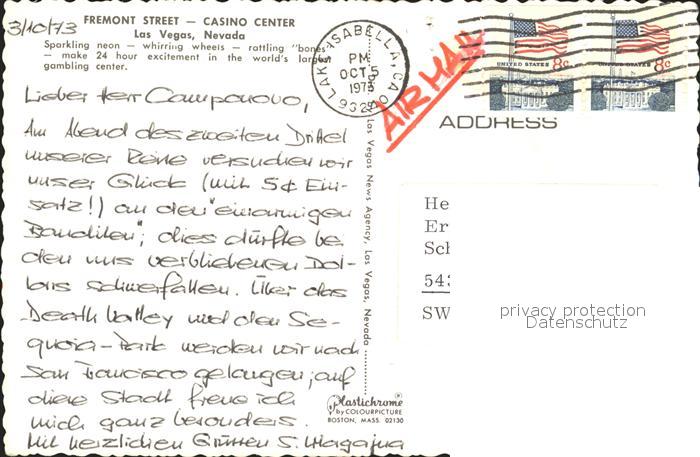 3/10/73
FREMONT STREET — CASINO CENTER
Las Vegas, Nevada
Sparkling neon — whirring wheels — rattling "bones"
— make 24 hour excitement in the world's largest
gambling center.
LAKE ISABELLA, CA
PM
OCT 5
1973
UNITED STATES 8c
UNITED STATES 8c
AIR MAIL
ADDRESS
Lieber Herr Camponovo,
Am Abend des zweiten Drittel
unserer Reise versuchen wir
unser Glück (mit 5¢ Ein-
satz!) an den "einarmigen
Banditen"; dies dürfte bei
den uns verbliebenen Dol-
lars schwerfallen. Über das
Death Valley und den Se-
quoia-Park werden wir nach
San Francisco gelangen; auf
diese Stadt freue ich
mich ganz besonders.
Mit herzlichen Grüssen S.
Las Vegas News Agency, Las Vegas, Nevada
He
Er
Sch
543
SW
privacy protection
Datenschutz
Plastichrome
by COLOURPICTURE
BOSTON, MASS. 02130